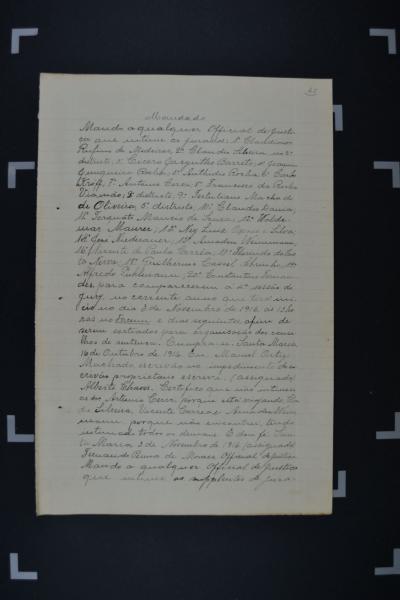 Mandado
Mando a qualquer Official de Justi-
ça que intime os jurados: 1º Claudino
Rufino de Medeiros, 2º Claudio
districto, 3º Cicero Barreto, 4º Joaquim
Rocha, 5º Rocha, 6º Carlos
Kroff, 7º Antonio Ceres, 8º Francisco da Rocha
districto, 9º Tertuliano Machado
de Oliveira, 5º districto, 10º Claudio
11º Torquato Mancio de Souza, 12º Walde-
mar Maurer, 13º Ney Luiz e Silva,
14º José Niederauer, 15º Amadeu
16º Vicente de Paula Corrêa, 17º da Co
18º Guilherme Cassel 19º
Alfredo 20º Constantino
para comparecerem á 4ª sessão do
jury, no corrente anno que terá ini-
cio no dia 3 de Novembro de 1916, ás 13 ho-
ras no Forum e dias seguintes, afim de
serem sorteados para organisação dos conse-
lhos de sentença. Cumpra-se. Santa Maria,
16 de Outubro de 1916. Eu, Manoel Ortiz
Machado, escrivão no impedimento do es-
crivão proprietario escrevi. (assignado)
Alberto Chaves. Certifico que não intimei
ao sr. Antonio Ceres, porque está viajando,
Silveira, Vicente Corrêa e Amadeu
porque não encontrei, tendo
intimado todos os demais. E dou fé. San-
ta Maria, 2 de Novembro de 1916. (assignado)
Fernando Penna de Moraes Official de Justiça
Mando a qualquer Official de Justiça
que intime os supplentes de jura-